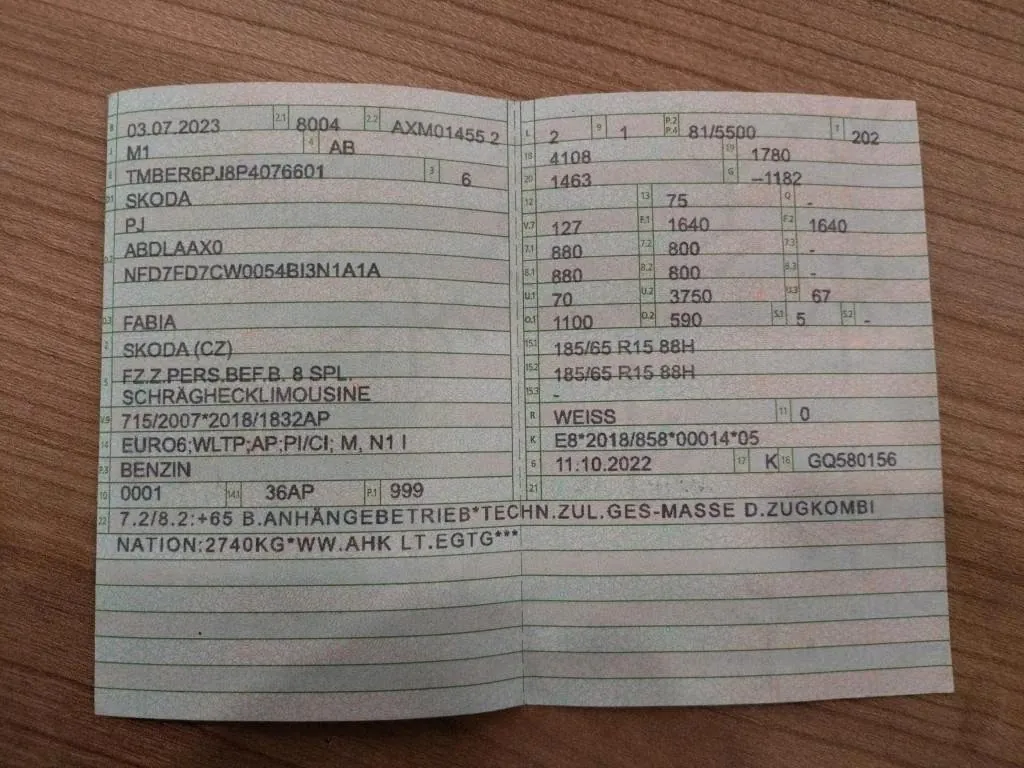 B 03.07.2023 2.1 8004 2.2 AXM01455 2
J M1 4 AB
E TMBER6PJ8P4076601 3 6
D.1 SKODA
PJ
D.2 ABDLAAX0
NFD7FD7CW0054BI3N1A1A
D.3 FABIA
2 SKODA (CZ)
5 FZ.Z.PERS.BEF.B. 8 SPL.
SCHRÄGHECKLIMOUSINE
V.9 715/2007*2018/1832AP
14 EURO6;WLTP;AP;PI/CI; M, N1 I
P.3 BENZIN
10 0001 14.1 36AP P.1 999
L 2 9 1 P.2 P.4 81/5500 T 202
18 4108 19 1780
20 1463 G –1182
12 13 75 Q -
V.7 127 F.1 1640 F.2 1640
7.1 880 7.2 800 7.3 -
8.1 880 8.2 800 8.3 -
U.1 70 U.2 3750 U.3 67
O.1 1100 O.2 590 S.1 5 S.2 -
15.1 185/65 R15 88H
15.2 185/65 R15 88H
15.3 -
R WEISS 11 0
K E8*2018/858*00014*05
6 11.10.2022 17 K 16 GQ580156
21
22 7.2/8.2:+65 B.ANHÄNGEBETRIEB*TECHN.ZUL.GES-MASSE D.ZUGKOMBI
NATION:2740KG*WW.AHK LT.EGTG***